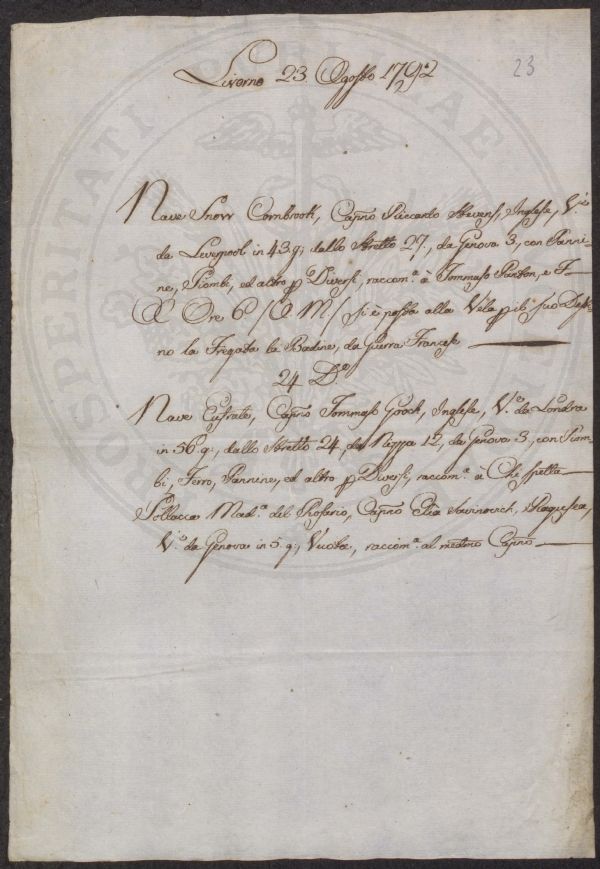 Livorno 23. Agosto 1792
23
Nave Snow Cornbrook, Capno Riccardo Stevens, Inglese, V.to
da Liverpool in 43. g; dallo Stretto 27, da Genova 3, con Panni-
ne, Piombi, ed altro p Diversi, raccom.a à Tommaso Panton, e F
A Ore 6 / A M / si è posta alla Vela p il suo Desti-
no la Fregata la Badine, da Guerra Francese
24 Do
Nave Eufrate, Capno Tommaso Gooch, Inglese, V.o da Londra
in 56. g; dallo Stretto 24, da Nizza 12, da Genova 3, con Piom-
bi, Ferro, Pannine, ed altro p Diversi, raccom.a à Chi spetta
Pollacca Mad.a del Rosario, Capno Elia Ivanovich, Ragusea,
V.o da Genova in 5. g; Vuota, raccom.a al medmo Capno
PROSPERITATI